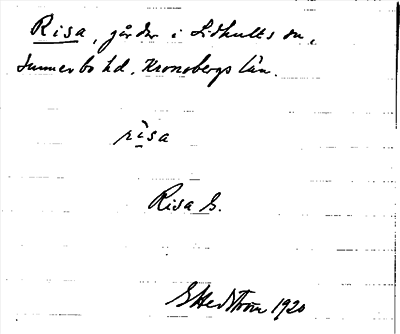 Risa, gårdar i Lidhults sn,
Sunnerbo hd, Kronobergs län.
risa
Risa G.
G Hedström 1920